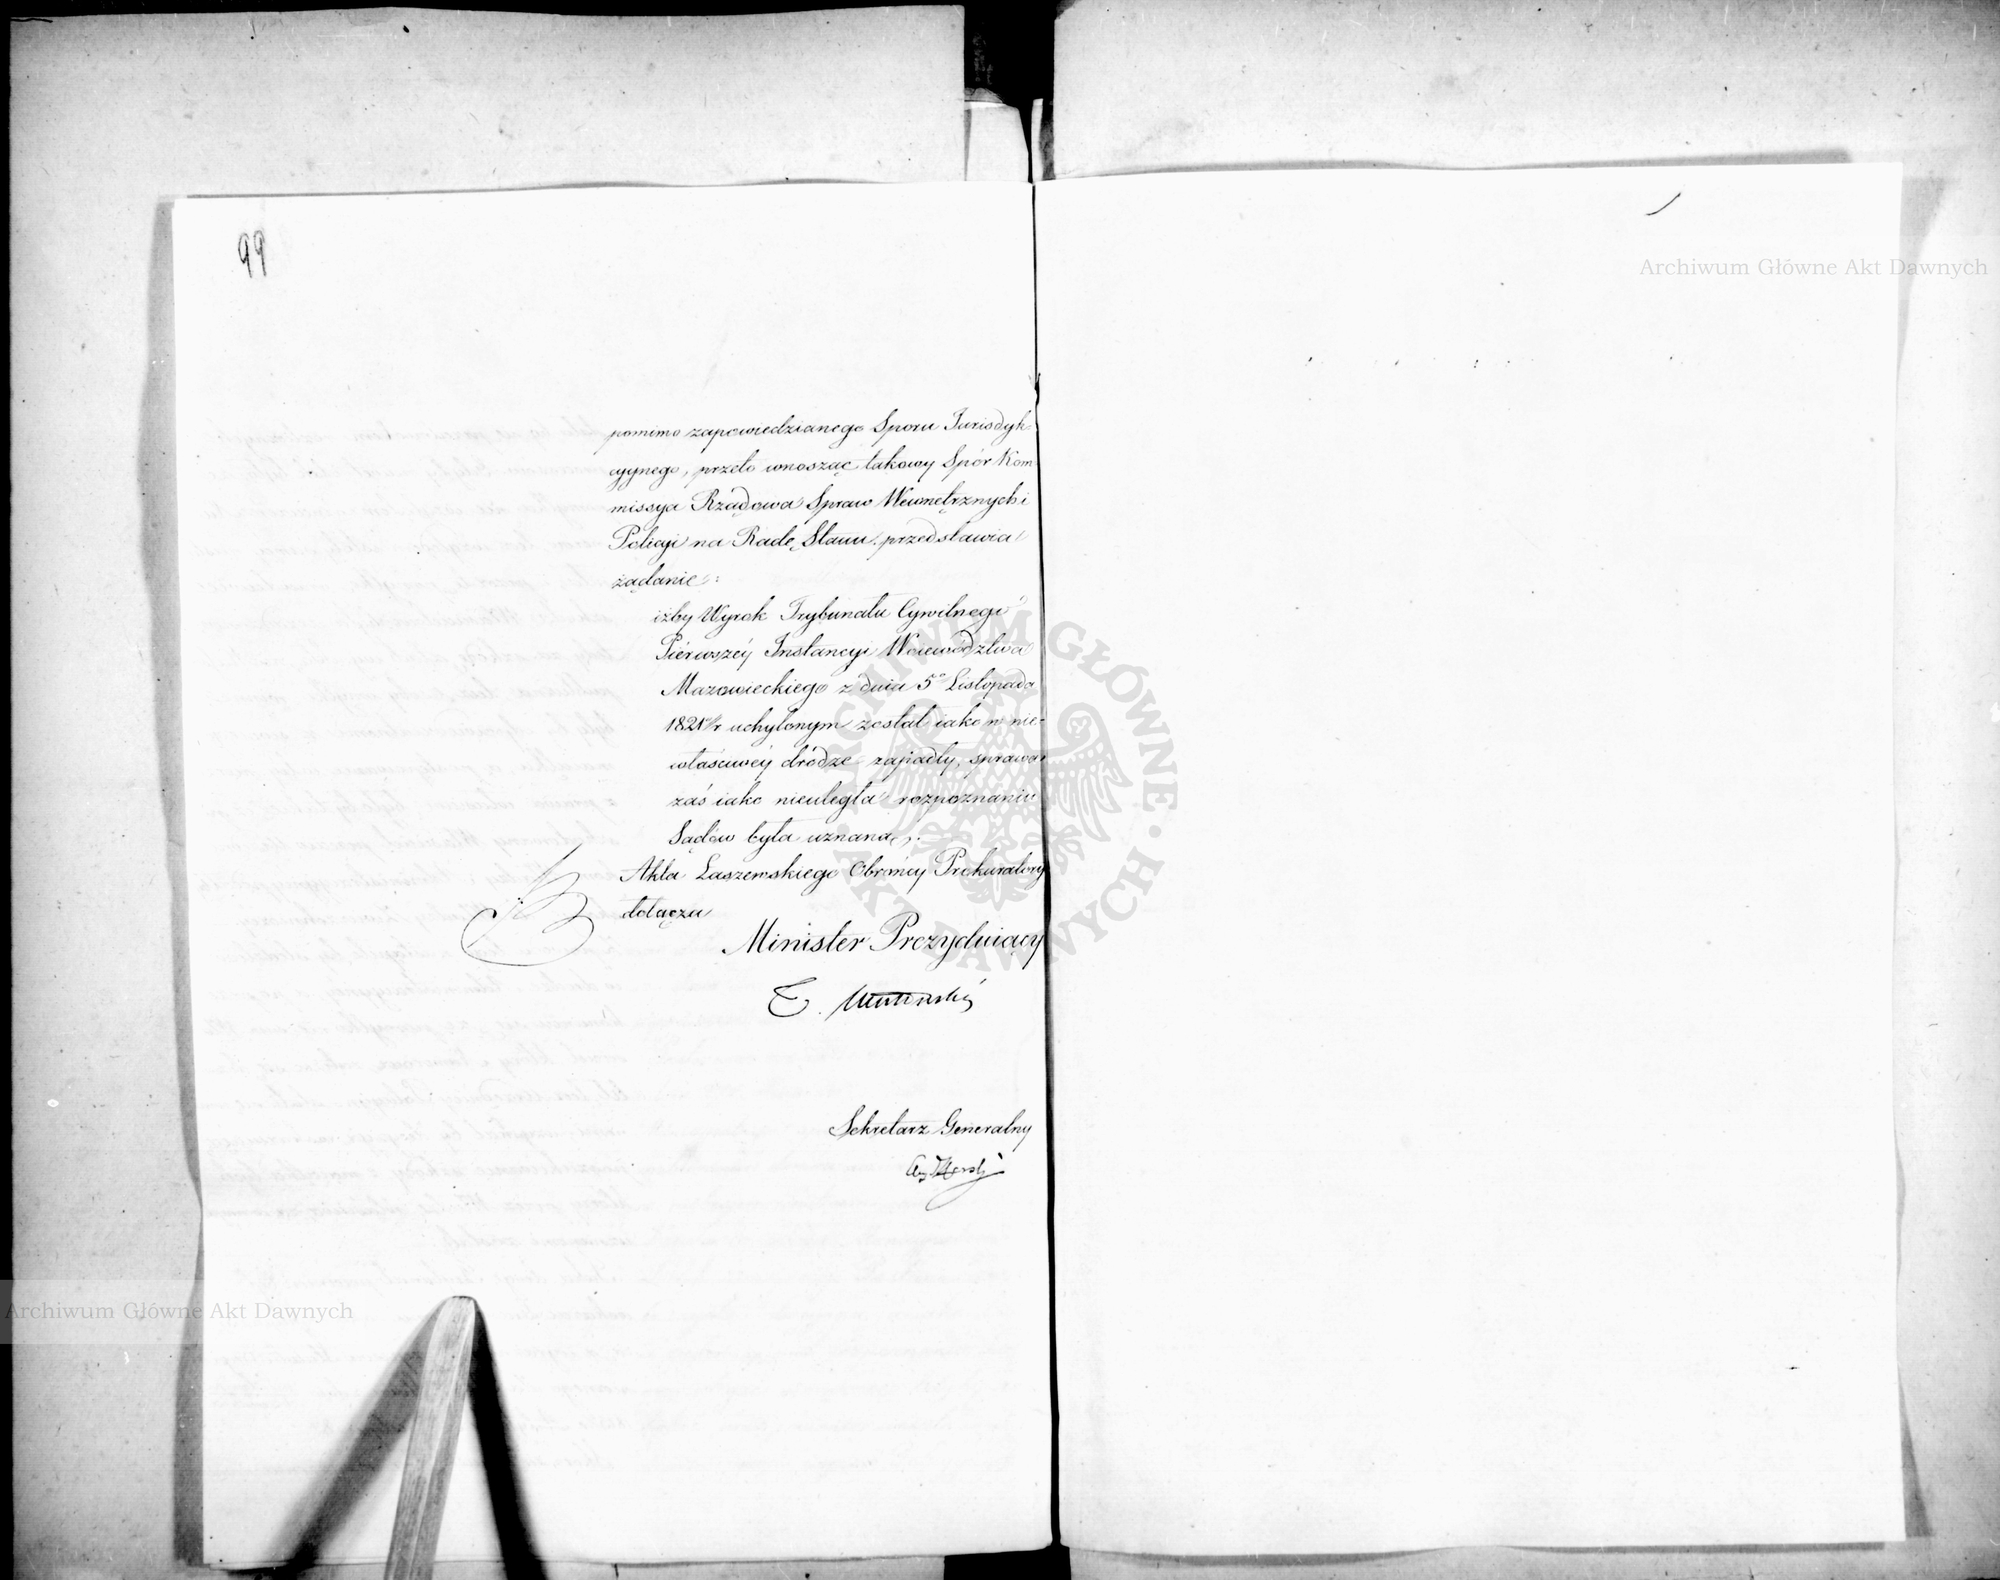 99
pomimo zapowiedzianego Sporu Jurisdyk-
cyynego, przeto wnosząc takowy Spór Kom
missya Rządowa Spraw Wewnętrznych i
Policyi na Radę Stanu przedstawia
żądanie:
iżby Wyrok Trybunału Cywilnego
Piérwszéy Instancyi Woiewództwa
Mazowieckiego z dnia 5º Listopada
1821 r uchylonym został iako w nie-
właściwéy dródze zapadły, sprawa
zaś iako nieuległa rozpoznaniu
Sądów była uznana.
Akta Laszewskiego Obrońcy Prokuratory
dołącza
Minister Prezyduiący
T. Mostowski
Sekretarz Generalny
Archiwum Główne Akt Dawnych
Archiwum Główne Akt Dawnych
ARCHIWUM GŁÓWNE AKT DAWNYCH